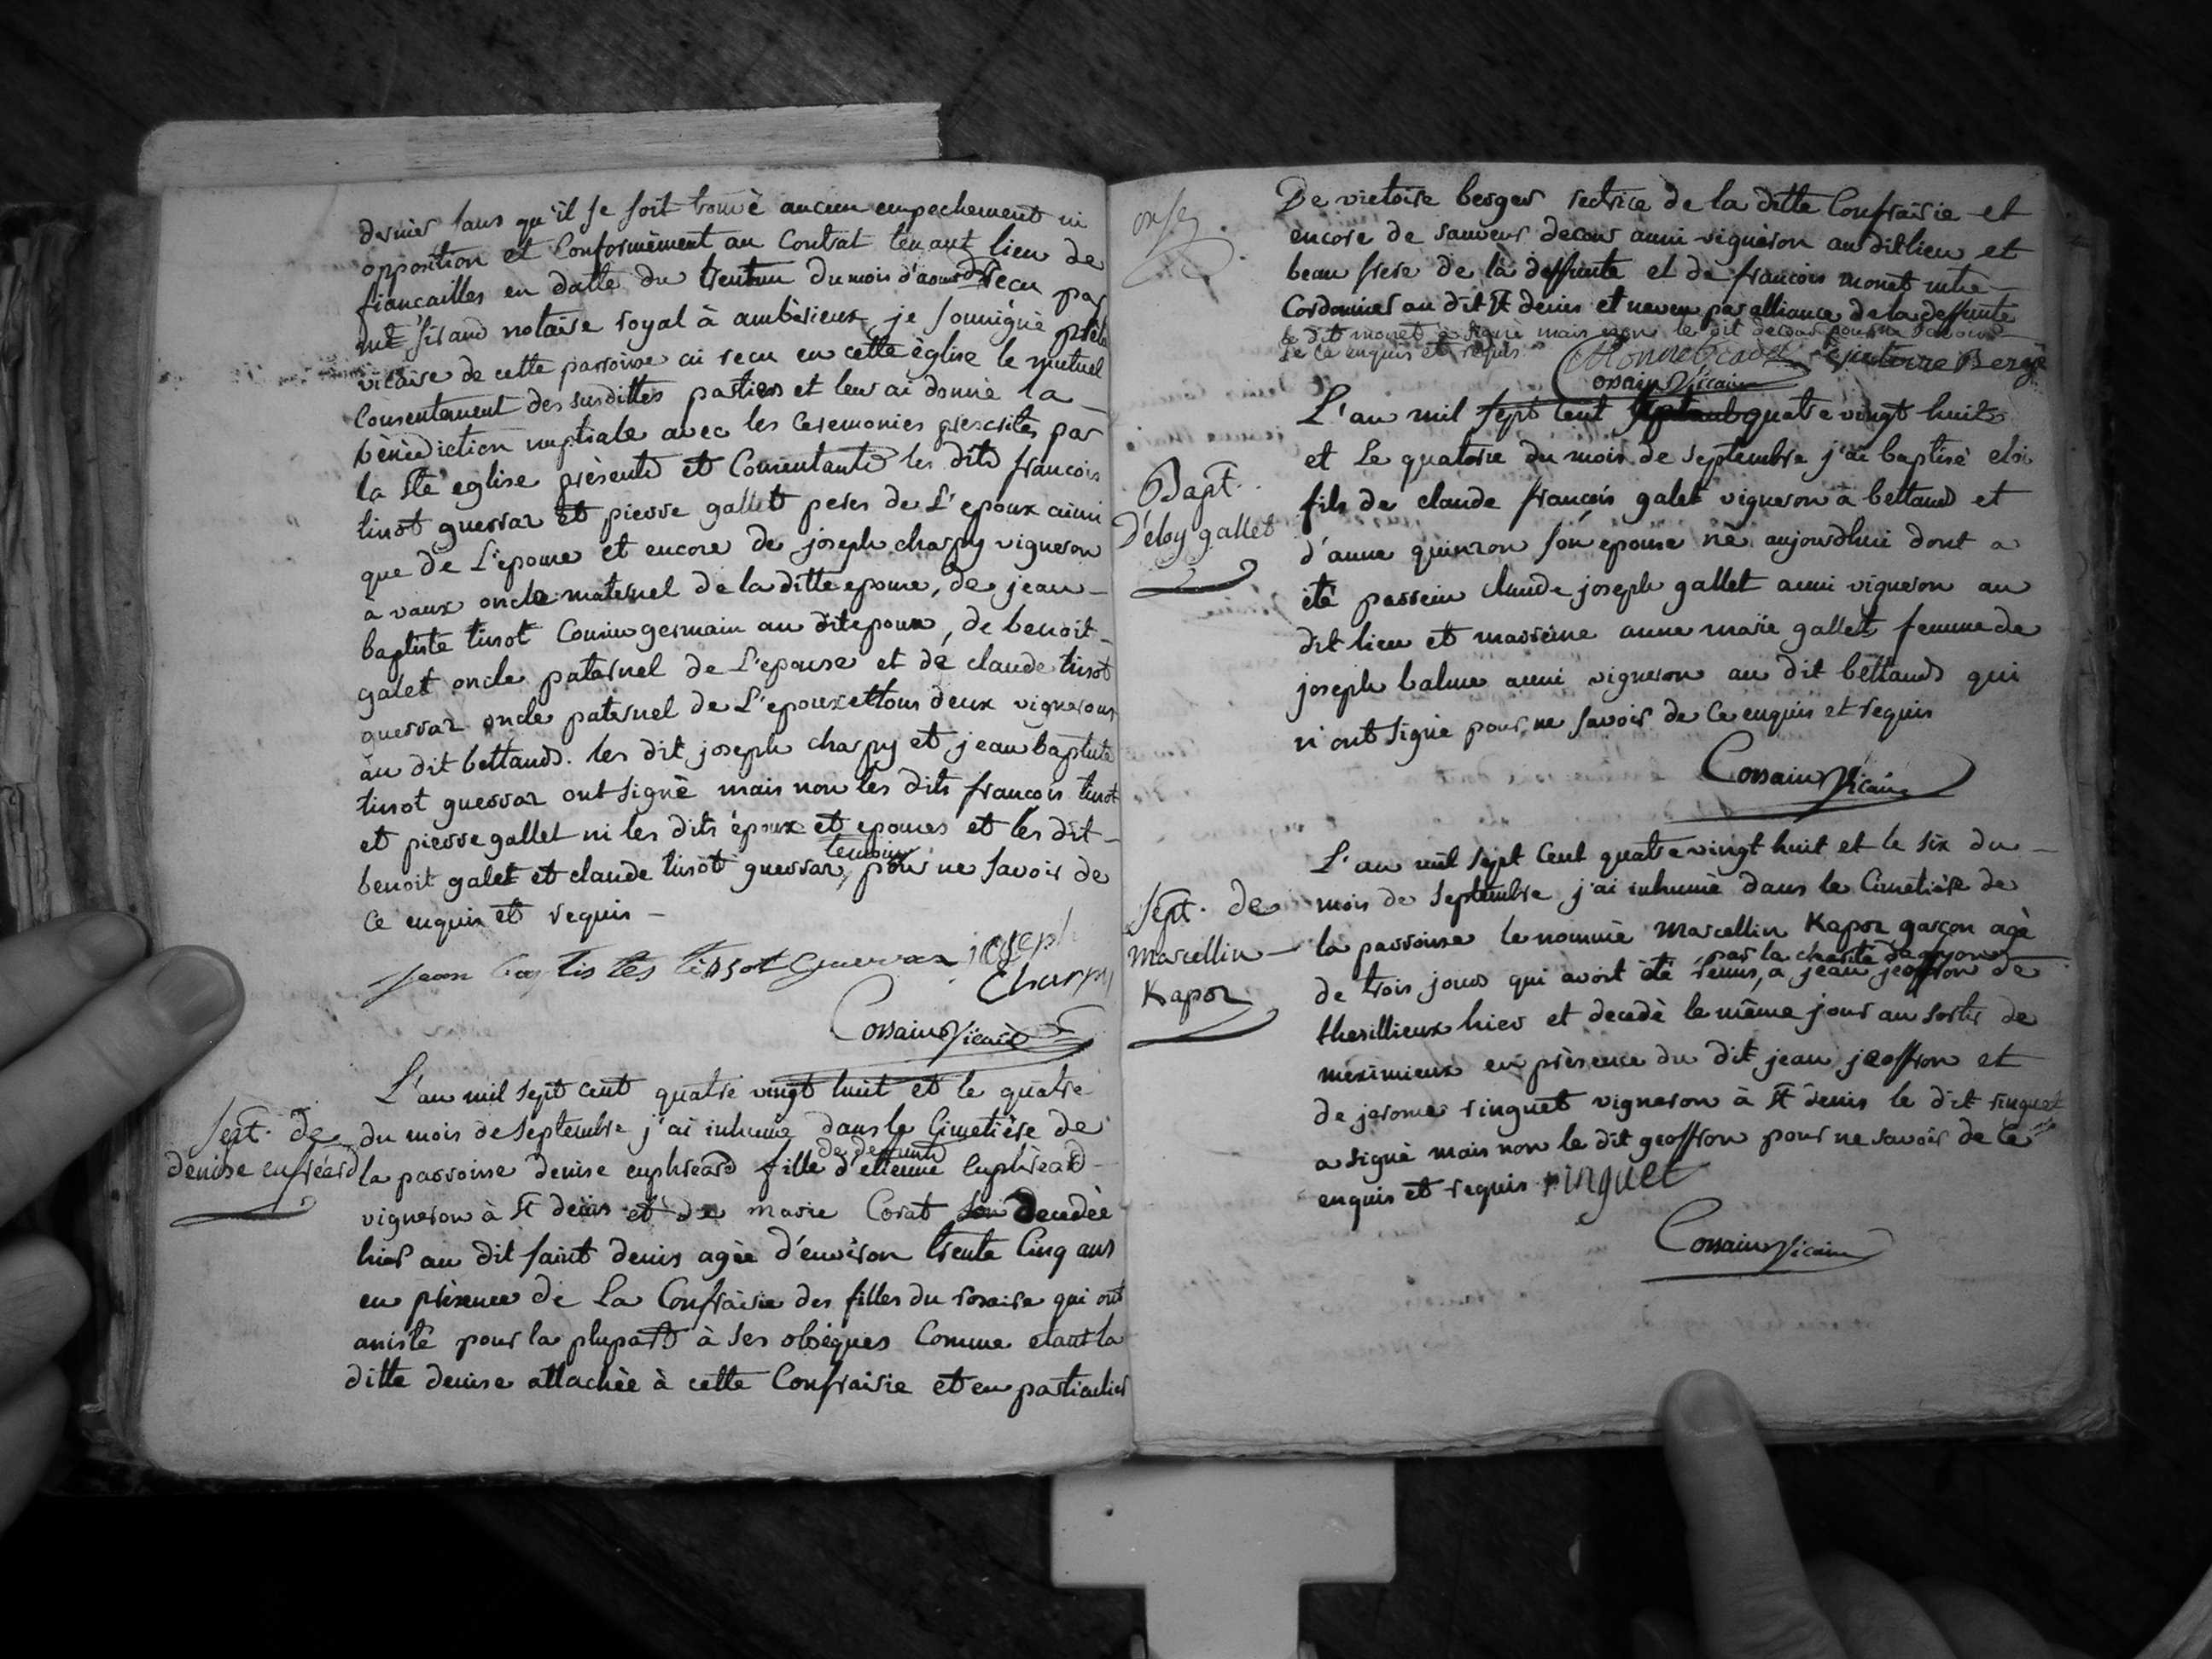 dernier sans qu'il se soit trouvè aucun empechement ni
opposition et Conformèment au Contrat tenant lieu de
fiancailles en datte du trentun du mois d'aoust recu par
me sirand notaire royal à ambèrieux je soussignè prètre
vicaire de cette parroisse ai recu en cette èglise le mutuel
Consentement des susdittes parties et leur ai donnè la
bènèdiction nuptiale avec les Ceremonies prescrites par
la ste eglise prèsents et Consentants les dits francois
tissot guerraz et pierre gallet peres de L'epoux aussi
que de L'epouse et encore de joseph charpy vigneron
à vaux oncle maternel de la ditte epouse, de jean
baptiste tissot Cousin germain au dit epoux, de benoit
galet oncle paternel de L'epouse et de claude tissot
guerraz oncle paternel de L'epoux et tous deux vignerons
au dit bettands. les dit joseph charpy et jean baptiste
tissot guerraz ont signè mais non les dits francois tissot
et pierre gallet ni les dits èpoux et epouses et les dit
benoit galet et claude tissot guerraz, temoins pour ne savoir de
Ce enquis et requis
jean baptistes tissot Guerraz joseph
Charpy
Cossain Vicaire
L'an mil sept cent quatre vingt huit et le quatre
Sept. de
denise eufréard
du mois de septembre j'ai inhumè dans le Cimetière de
la parroisse denise euphreard fille de deffunt d'etienne Euphreard
vigneron à st denis et de marie Corat decedèe
hier au dit saint denis agèe d'environ trente Cinq ans
en prèsence de La Confrairie des filles du rosaire qui ont
assistè pour la plupart à ses obsèques Comme etant la
ditte denise attachèe à cette Confrairie et en particulier
De victoire berger rectrice de la ditte Confrairie et
encore de sauveur decour aussi vigneron au dit lieu et
beau frere de la deffunte et de francois monet
Cordonnier au dit st denis et neveu par alliance de la deffunte
le dit monet a signè mais non le dit decour pour ne savoir
de Ce enquis et requis
victoire Berger
Cossain Vicaire
L'an mil sept Cent quatre vingt huit
et Le quatorze du mois de septembre j'ai baptisè eloi
Bapt.
D'eloy gallet
fils de claude francois galet vigneron à bettand et
d'anne quinson son epouse nè aujourdhui dont a
ètè parrein claude joseph gallet aussi vigneron au
dit lieu et marrèine anne marie gallet femme de
joseph balme aussi vigneron au dit bettands qui
n'ont signè pour ne savoir de Ce enquis et requis
Cossain Vicaire
L'an mil sept Cent quatre vingt huit et le six du
Sept. de
Marcellin
Kapoz
mois de septembre j'ai inhumè dans le Cimetière de
la parroisse le nommè Marcellin Kapoz garçon agè
de trois jours qui avoit ètè remis, par la charitè de lyon a jean jeoffron de
thesillieux hier et decedè le même jour au sortir de
meximieux en prèsence du dit jean jeoffron et
de jerome ringuet vigneron à st denis le dit ringuet
a signè mais non le dit geoffron pour ne savoir de Ce
enquis et requis ringuet
Cossain Vicaire